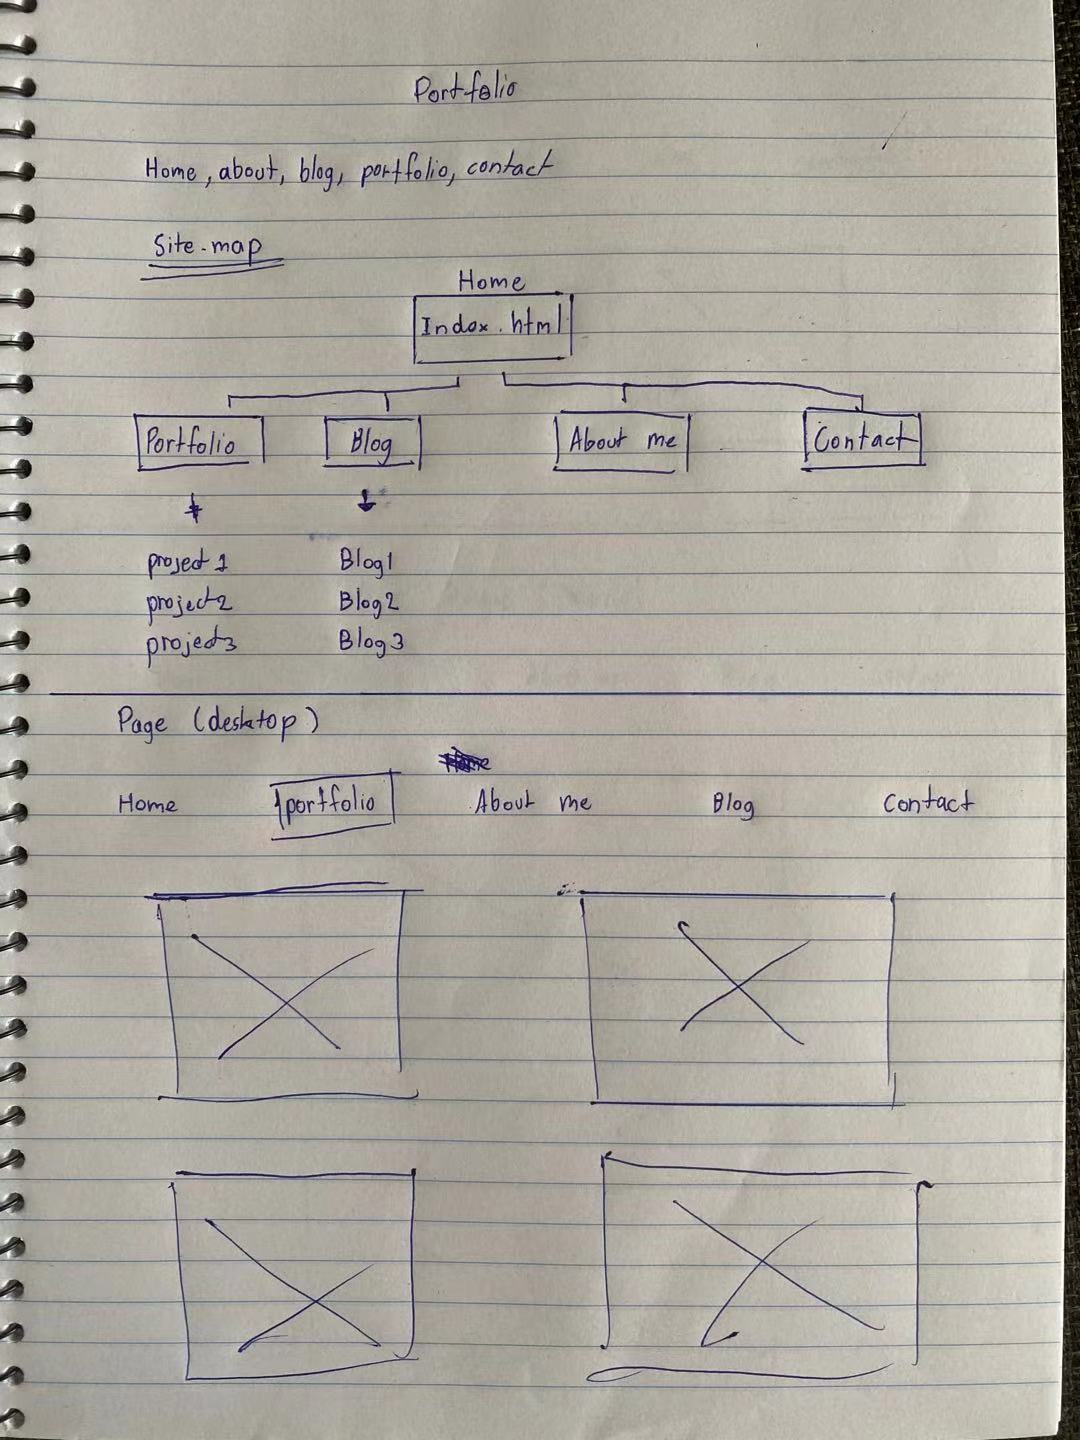 Portfolio
Home, about, blog, portfolio, contact
Site-map
Home
Indox.html
Portfolio Blog About me Contact
project 1 Blog1
project2 Blog2
project3 Blog3
Page (desktop)
Home portfolio About me Blog Contact